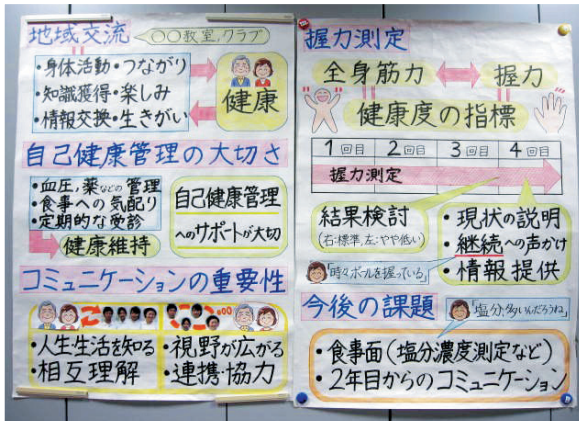 地域交流
○○教室、クラブ
・身体活動・つながり
・知識獲得・楽しみ
・情報交換・生きがい
健康
自己健康管理の大切さ
・血圧、薬などの管理
・食事への気配り
・定期的な受診
健康維持
自己健康管理
へのサポートが大切
コミュニケーションの重要性
・人生・生活を知る
・相互理解
・視野が広がる
・連携・協力
握力測定
全身筋力
握力
健康度の指標
1回目 2回目 3回目 4回目
握力測定
結果検討
(右:標準、左:やや低い)
「時々ボールを握っている」
・現状の説明
・継続への声かけ
・情報提供
今後の課題
「塩分、多いんだろうね」
・食事面(塩分濃度測定など)
・2年目からのコミュニケーション